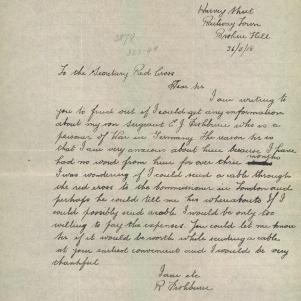 Harvey Street
Railway Town
Broken Hill
26/8/18
To the Secretary Red Cross
Dear Sir
I am writing to
you to find out if I could get any information
about my son Sergeant C J Fishburn who is a
prisoner of War in Germany the reason Sir is
that I am very anxious about him because I have
had no word from him for over three months
I was wondering if I could send a cable through
the red cross to the Commissioner in London and
perhaps he could tell me his whereabouts If I
could possibly send a cable I would be only too
willing to pay the expenses. You could let me know
Sir if it would be worth while sending a cable
at your earliest convenient and I would be very
thankful
I am etc
R Fishburn